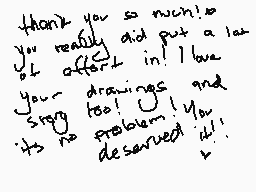 thank you so much!
you really did put a lot
of effort in! I love
your drawings and
story too!
its no problem! You
deserved it!!